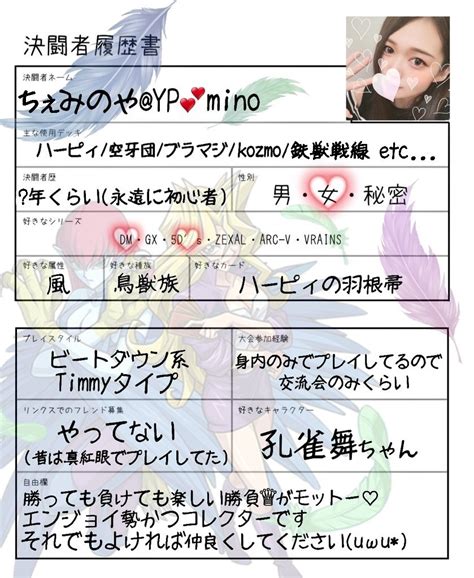 決闘者履歴書
決闘者ネーム
ちぇみのや@YP💕mino
主な使用デッキ
ハーピィ/空牙団/ブラマジ/kozmo/鉄獣戦線 etc...
決闘者歴
?年くらい(永遠に初心者)
性別
男・女・秘密
好きなシリーズ
DM・GX・5D's・ZEXAL・ARC-V・VRAINS
好きな属性
風
好きな種族
鳥獣族
好きなカード
ハーピィの羽根帚
プレイスタイル
ビートダウン系
Timmyタイプ
大会参加経験
身内のみでプレイしてるので
交流会のみくらい
リンクスでのフレンド募集
やってない
(昔は真紅眼でプレイしてた)
好きなキャラクター
孔雀舞ちゃん
自由欄
勝っても負けても楽しい勝負♕がモットー♡
エンジョイ勢かつコレクターです
それでもよければ仲良くしてください(uωu*)